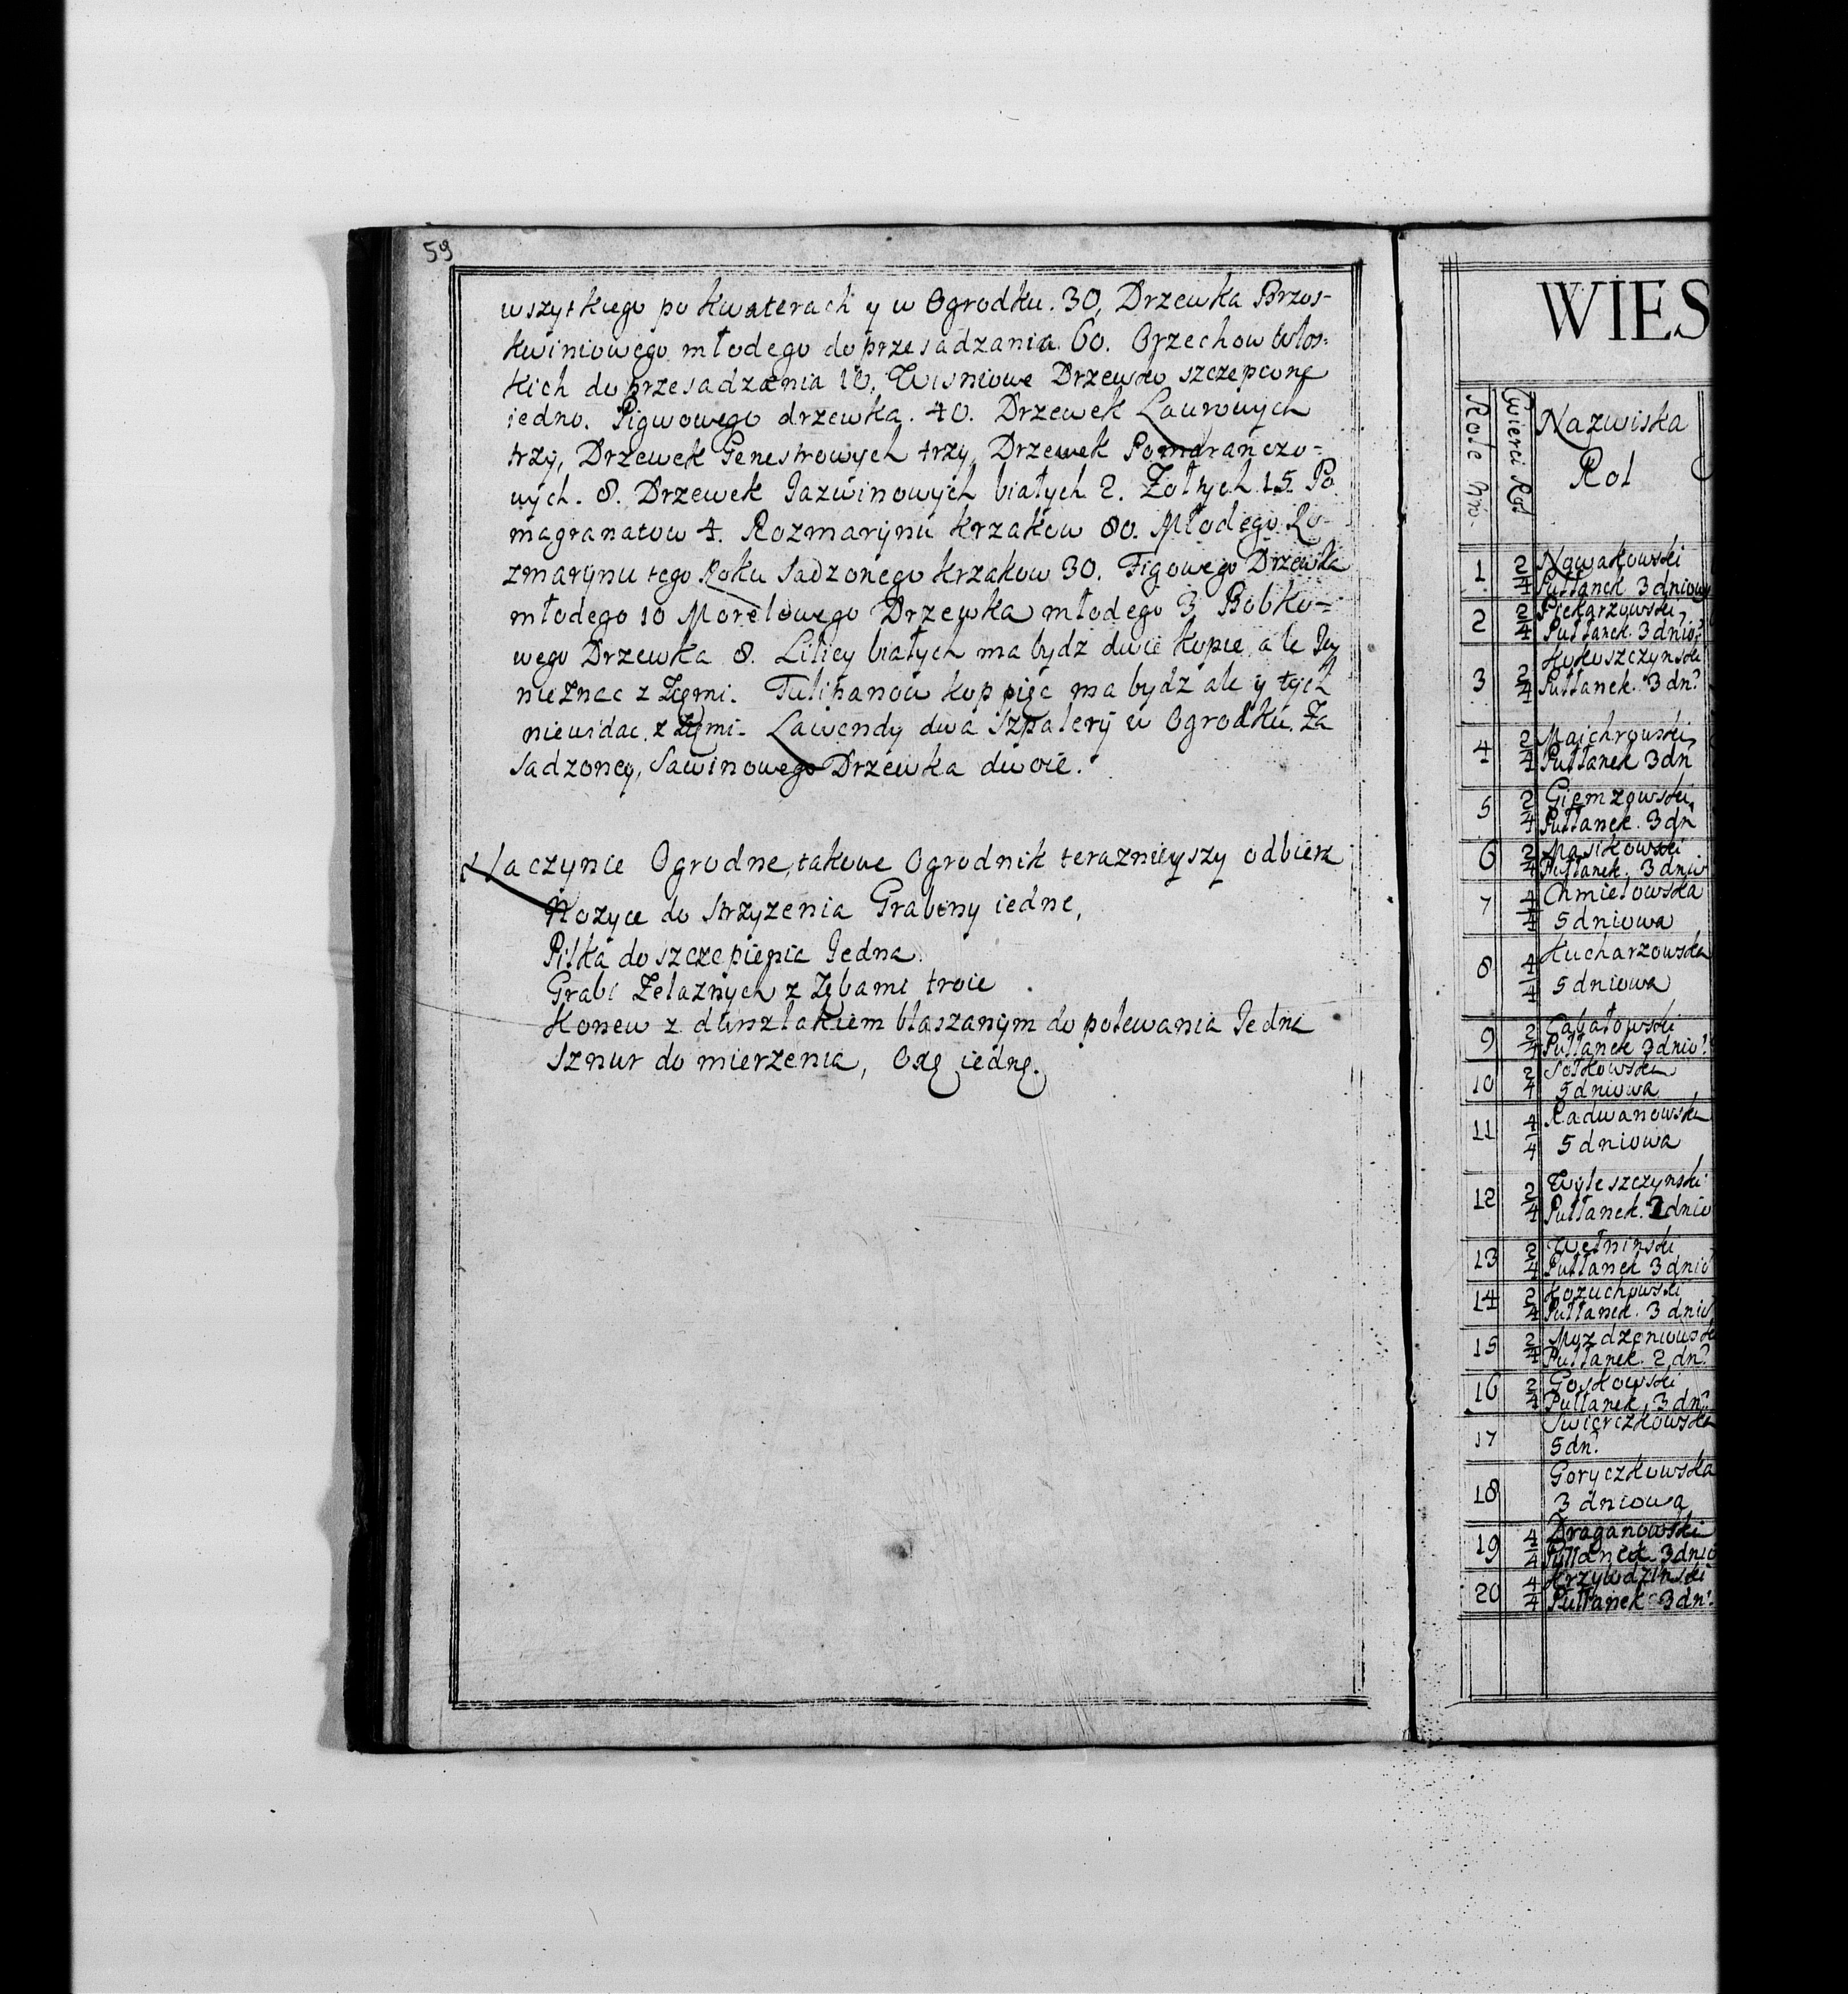 59
wszytkiego po kwaterach y w Ogrodku. 30, Drzewka Brzos-
kwiniowego młodego do przesadzania. 60. Orzechow Włos-
kich do przesadzania 10. Wisniowe Drzewko szczepione
iedno. Pigwowego drzewka. 40. Drzewek Laurowych
trzy, Drzewek Genestrowych trzy, Drzewek Pomaranczo-
wych. 8. Drzewek Jazwinowych białych 2. Żołtych 15. Po
magranatow 4. Rozmarynu krzakow 80. Młodego Ro-
zmarynu tego Roku Sadzonego krzakow 30. Figowego Drzewka
młodego 10 Morelowego Drzewka młodego 3 Bobko-
wego Drzewka 8. Liliey białych ma bydz dwie kopie, ale Jey
nieznac z Zięmi. Tulipanow kop pięc ma bydz ale y tych
niewidac z Zięmi. Lawendy dwa Szpalery w Ogrodku. Za
sadzoney, Sawinowego Drzewka dwoie.
Naczynie Ogrodne, takowe Ogrodnik teraznieyszy odbiera
Nozyce do Strzyzenia Grabiny iedne,
Piłka do szczepienia Jedna.
Grabi Żelaznych z Zębami troie
Konew z durszlakiem blaszanym do polewania Jedna
Sznur do mierzenia, Osę iednę.
WIES
Role Nro.
Cwierci Rol
Nazwiska
Rol
1 2/4 Nowakowski
Pułłanek 3 dniowy
2 2/4 Piekarzowski
Pułłanek. 3 dnio?
3 2/4 Kokoszczynski
Pułłanek. 3 dn?
4 2/4 Maichrowski
Pułłanek 3 dn
5 2/4 Giemzowski
Pułłanek. 3 dn
6 2/4 Masikowski
Pułłanek. 3 dnio
7 4/4 Chmielowska
5 dniowa
8 4/4 Kucharzowska
5 dniowa
9 2/4 Gabałowski
Pułłanek 3 dnio?
10 2/4
5 dniowa
11 4/4 Radwanowska
5 dniowa
12 2/4 Wyleszczynski
Pułłanek. dnio
13 2/4 Wełninski
Pułłanek 3 dnio
14 2/4 Kozuchowski
Pułłanek. 3 dnio
15 2/4 Mozdzeniowski
Pułłanek. 2 dn?
16 2/4 Goskowski
Pułłanek, 3 dn?
17 Swierczkowska
5 dn?
18 Goryczkowska
3 dniowa
19 4/4 Draganowski
Pułłanek 3 dnio
20 4/4 Krzywdzinski
Pułłanek 3 dn?